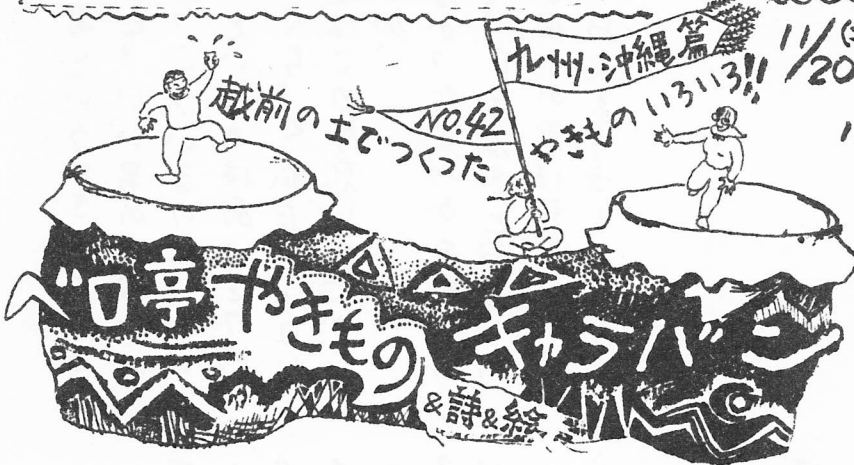 九州・沖縄篇
NO.42
11/
20
越前の土でつくった
やきもの いろいろ!!
ベロ亭やきものキャラバン
&詩&絵